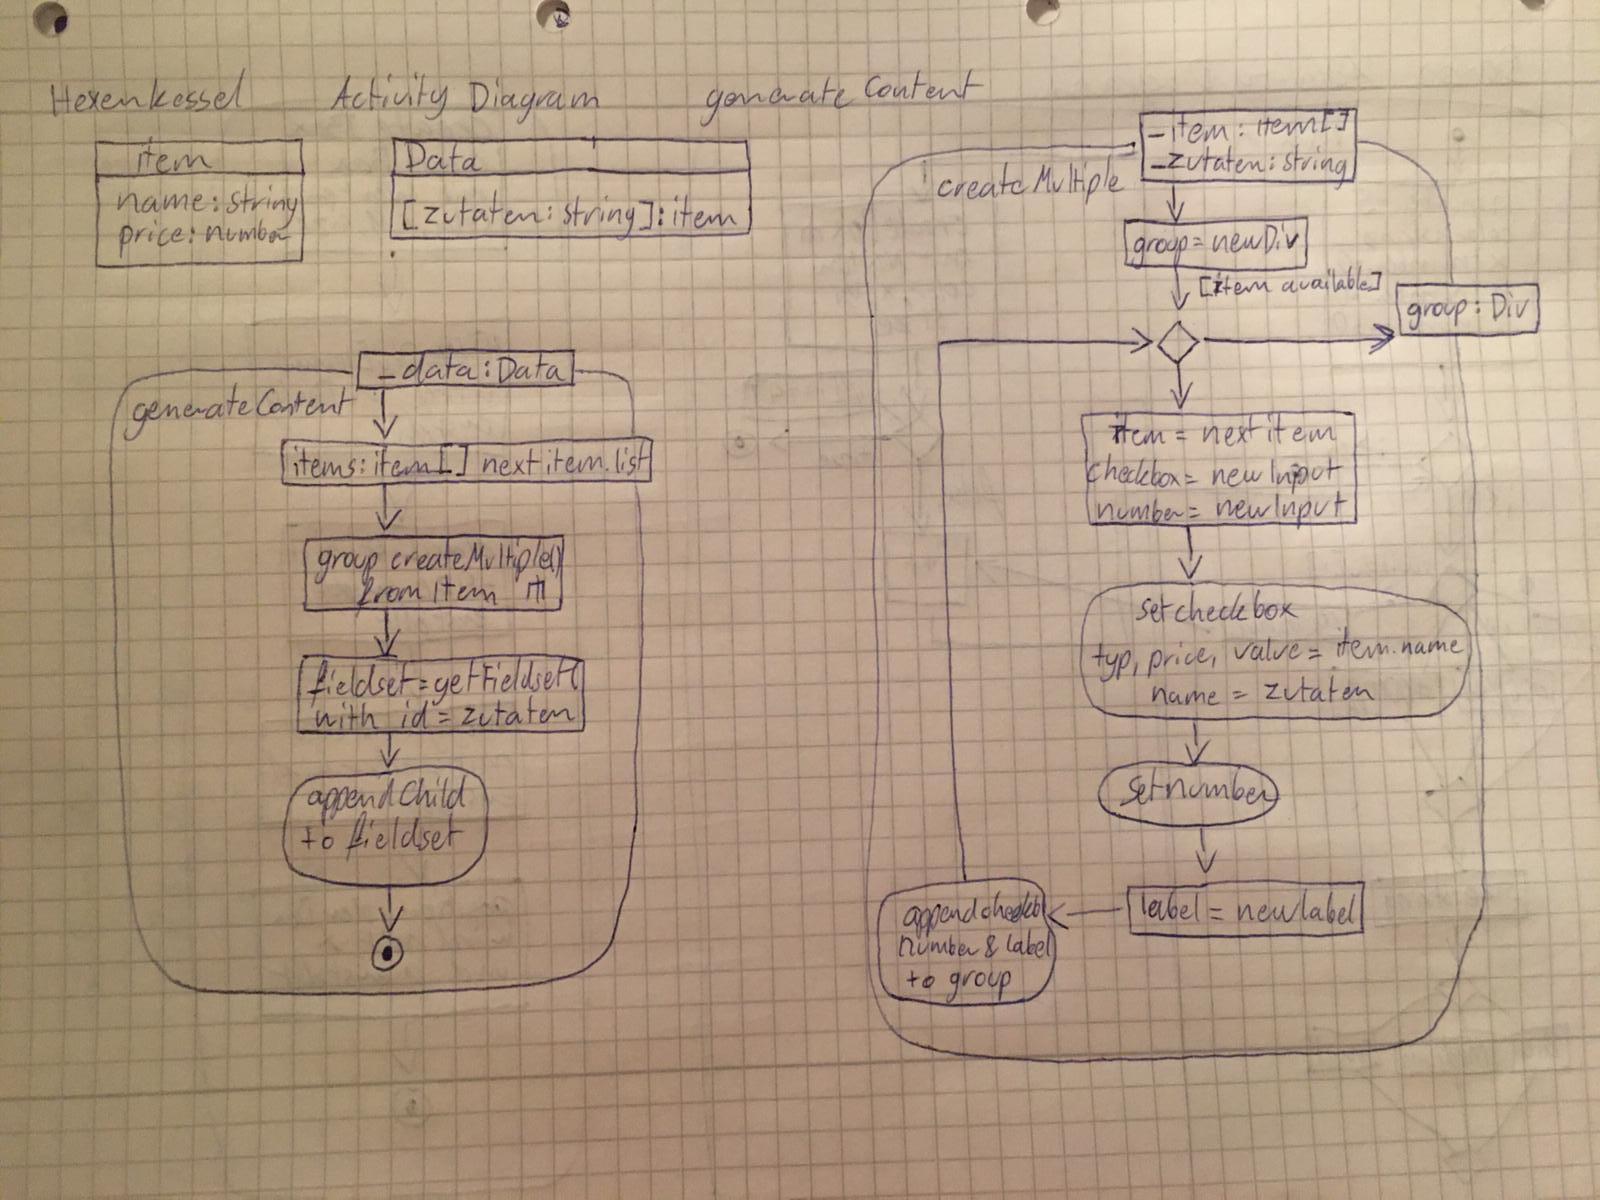 Hexenkessel Activity Diagram generate Content
item
name: string
price: number
Data
[zutaten: string]: item
_data: Data
generateContent
items: item[] next item.list
group createMultiple()
from Item
fieldset = getFieldset(
with id = zutaten
appendChild
to fieldset
_item: item[]
_zutaten: string
createMultiple
group = newDiv
[item available]
group: Div
item = next item
checkbox = newInput
number = newInput
set checkbox
typ, price, value = item.name
name = zutaten
setnumber
label = newlabel
append checkb
number & label
to group